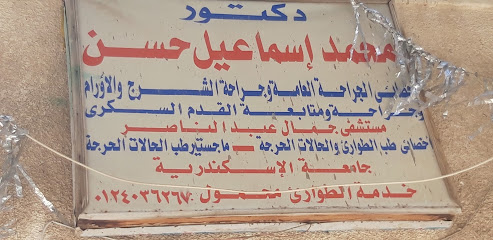 دكتور
محمد إسماعيل حسن
أخصائى الجراحة العامة وجراحة الشرج والأورام
وجراحة ومتابعة القدم السكرى
مستشفى جمال عبد الناصر
أخصائى طب الطوارئ والحالات الحرجة - ماجستير طب الحالات الحرجة
جامعة الإسكندرية
خدمة الطوارئ محمول ٠١٢٤٠٣٦٢٦٧